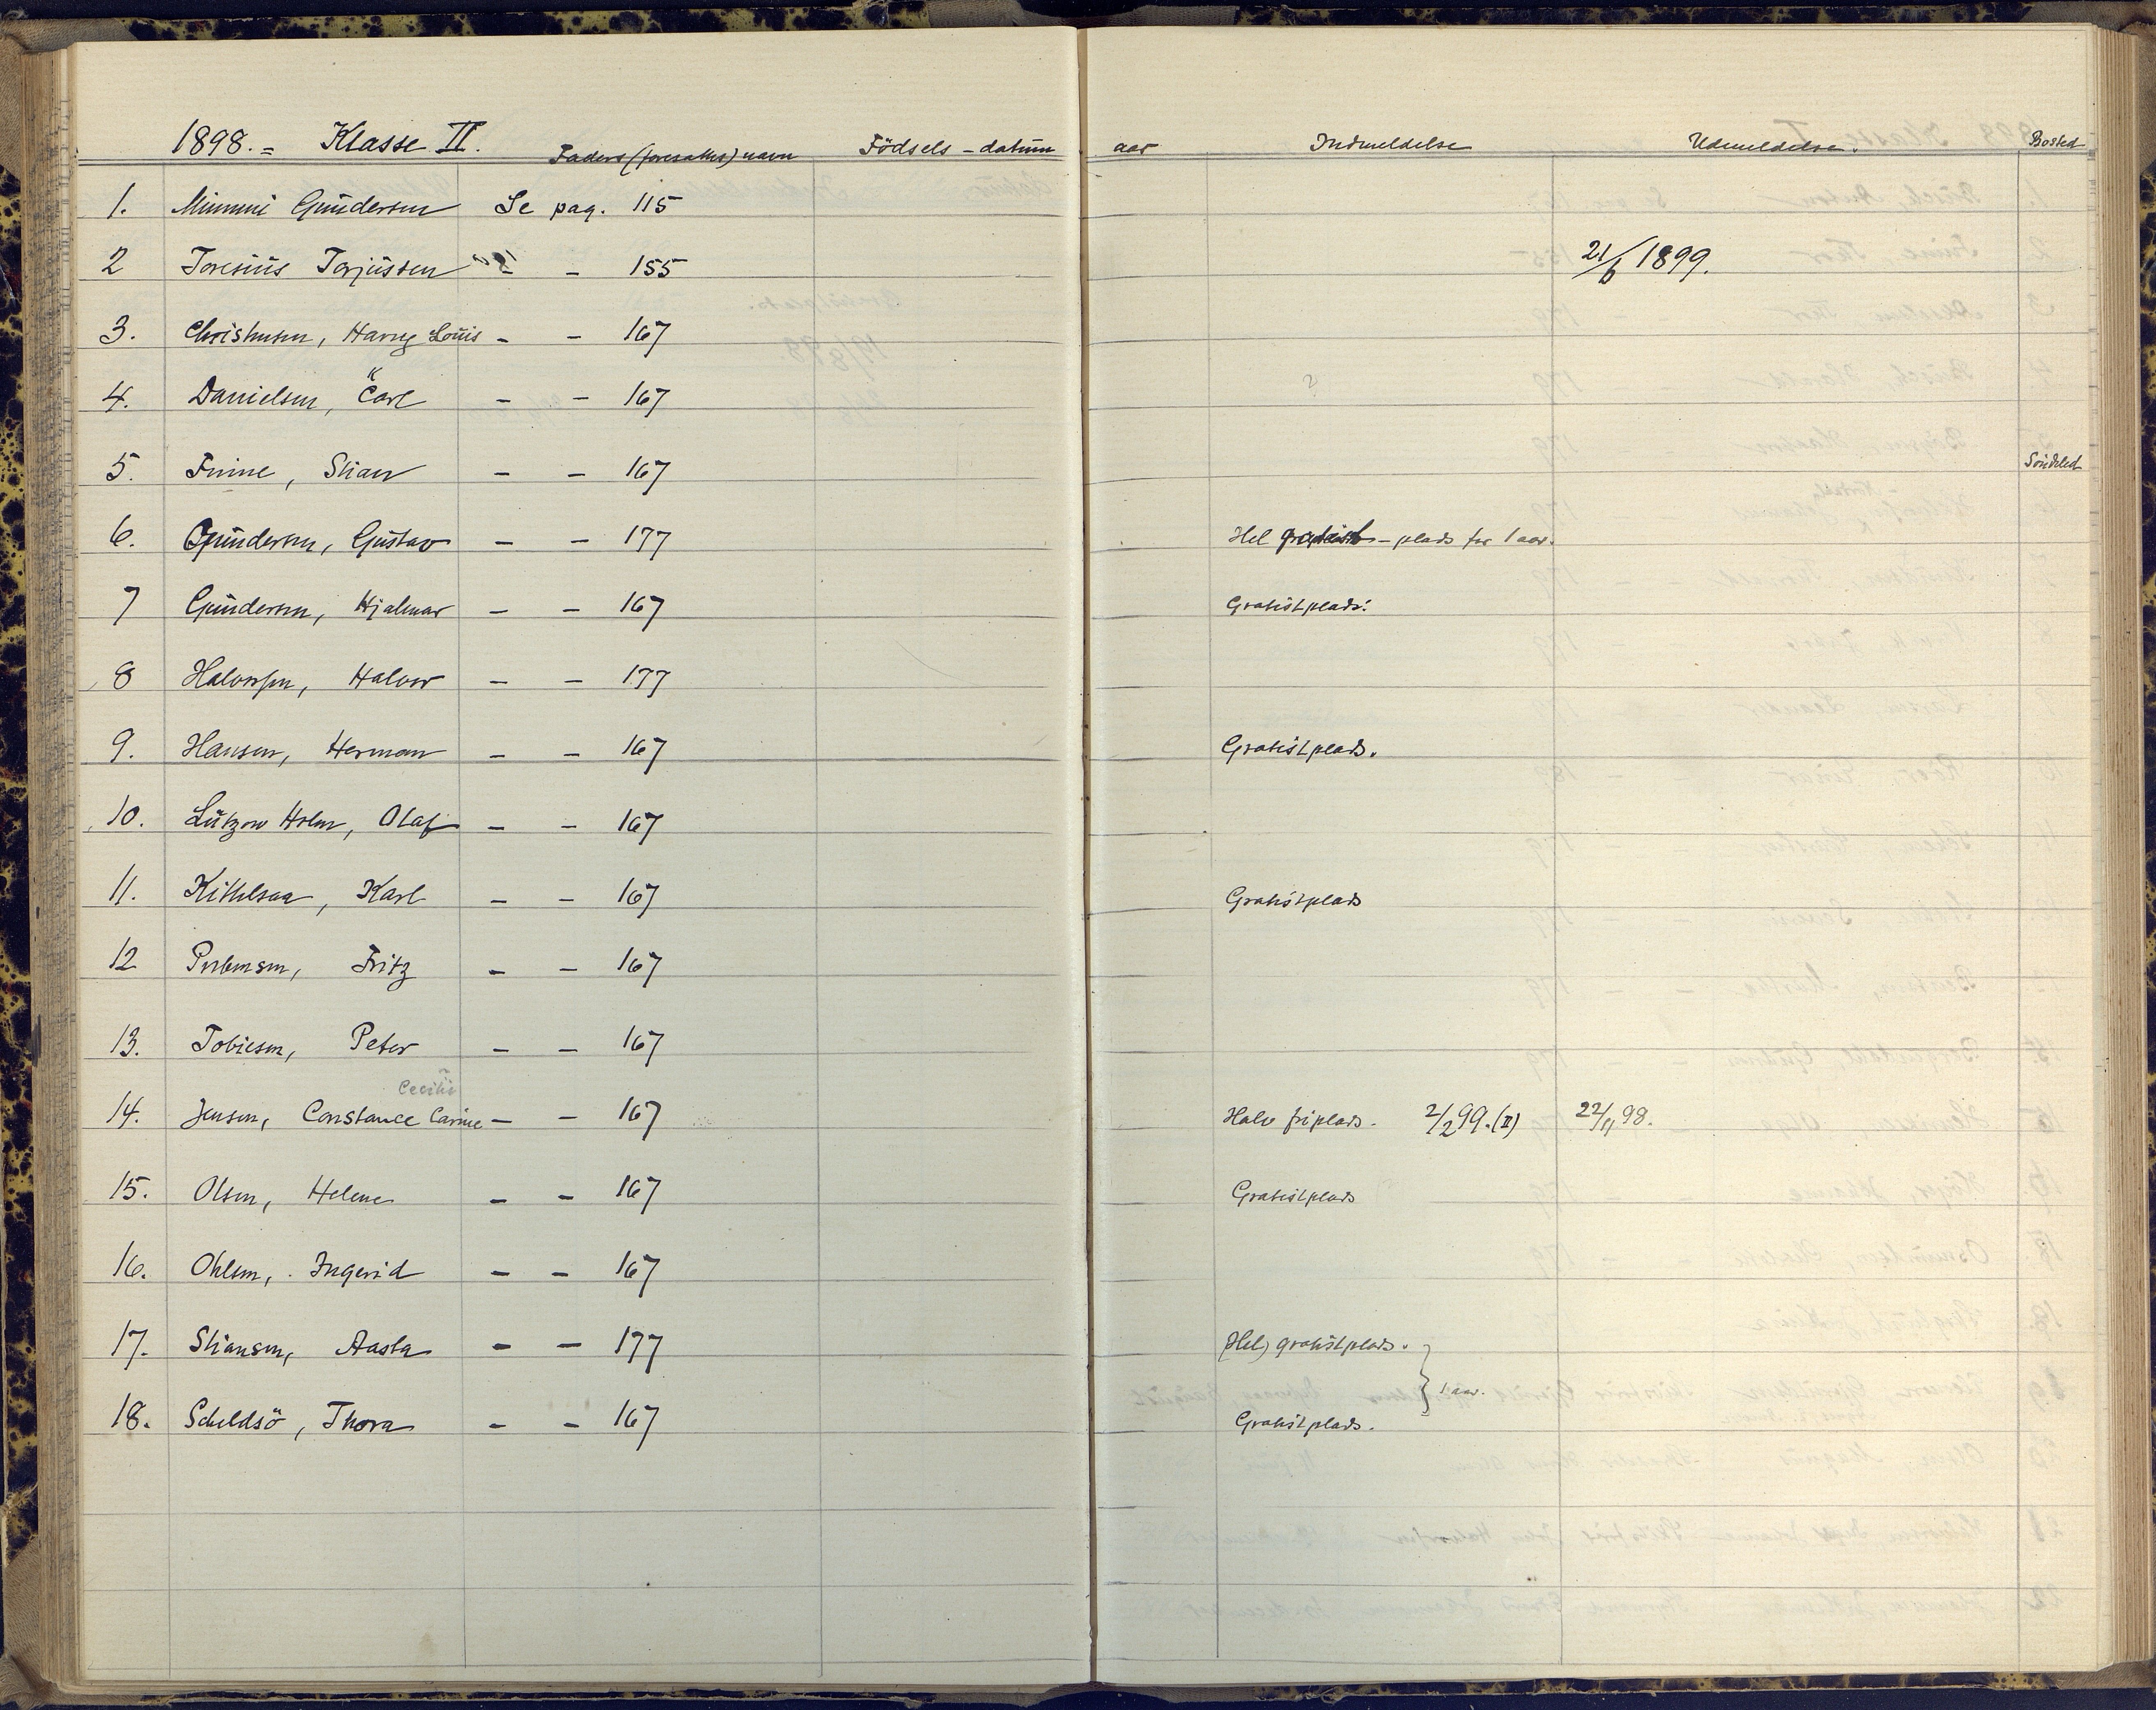 1898. = Klasse II. Faders (foresattes) navn Födsels - datum aar Indmeldelse Udmeldelse. Bosted
1. Mimmi Gundersen Se pag. 115
2 Toresius Torjussen - - 155 21/6 1899.
3. Christensen, Harry Louis - - 167
K
4. Danielsen, Carl - - 167
5. Finne, Stian - - 167 Söndeled
6. Gundersen, Gustav - - 177 Hel gratist - plads for 1 aar.
7 Gundersen, Hjalmar - - 167 Gratistplads.
8 Halvorsen, Halvor - - 177
9. Hansen, Herman - - 167 Gratistplads.
10. Lützow Holm, Olaf - - 167
11. Kittelsaa, Karl - - 167 Gratistplads
12 Fritz - - 167
13. Tobiesen, Peter - - 167
Cecilie
14. Jensen, Constance Carine - - 167 Halv friplads. 2/2 99. (II) 22/11 98.
15. Olsen, Helene - - 167 Gratistplads
16. Ohlsen, Ingerid - - 167
17. Stiansen, Aasta - - 177 (Hel) gratistplads.
1 aar.
18. Scheldsö, Thora - - 167 Gratistplads.